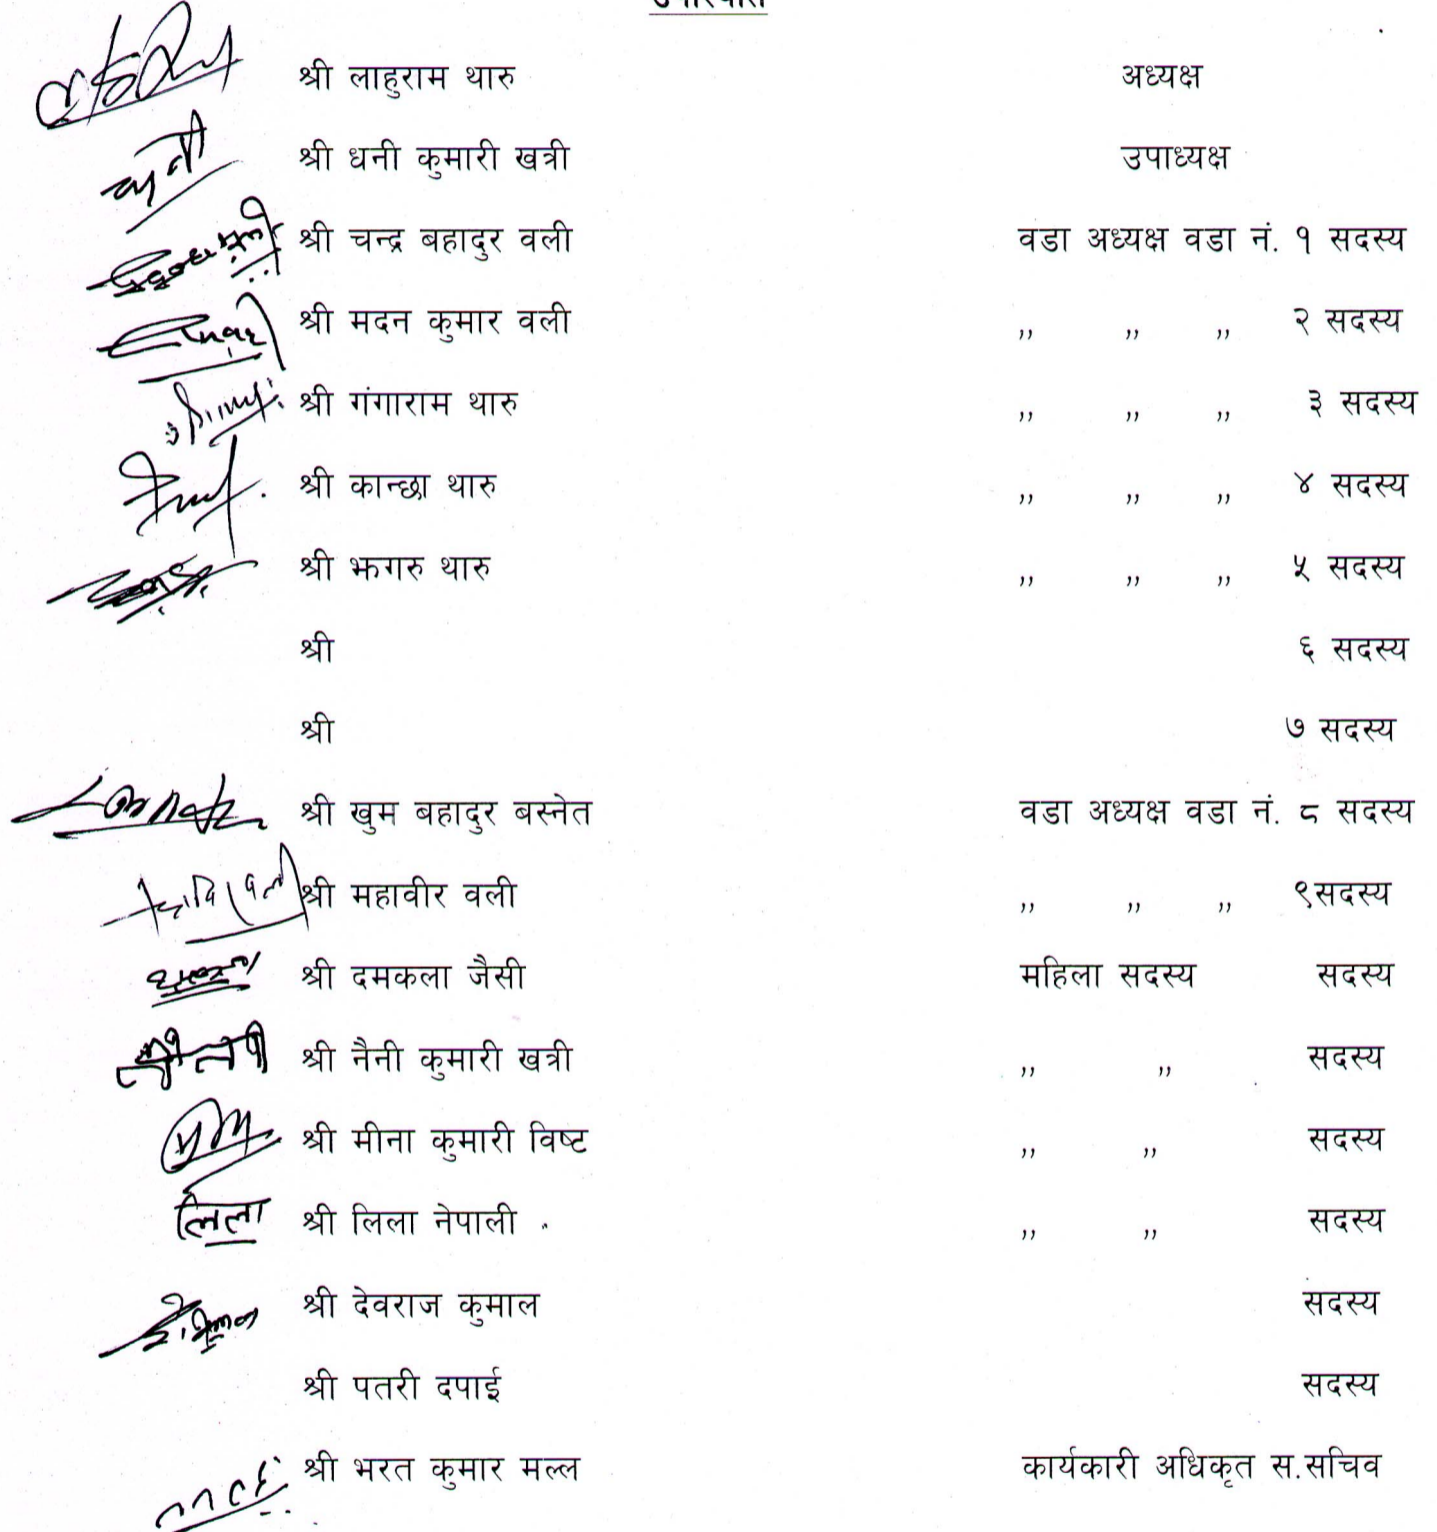 उपस्थिति
श्री लाहुराम थारु अध्यक्ष
श्री धनी कुमारी खत्री उपाध्यक्ष
श्री चन्द्र बहादुर वली वडा अध्यक्ष वडा नं. १ सदस्य
श्री मदन कुमार वली ,, ,, ,, २ सदस्य
श्री गंगाराम थारु ,, ,, ,, ३ सदस्य
श्री कान्छा थारु ,, ,, ,, ४ सदस्य
श्री झगरु थारु ,, ,, ,, ५ सदस्य
श्री ६ सदस्य
श्री ७ सदस्य
श्री खुम बहादुर बस्नेत वडा अध्यक्ष वडा नं. ८ सदस्य
श्री महावीर वली ,, ,, ,, ९सदस्य
श्री दमकला जैसी महिला सदस्य सदस्य
श्री नैनी कुमारी खत्री ,, ,, सदस्य
श्री मीना कुमारी विष्ट ,, ,, सदस्य
लिला श्री लिला नेपाली ,, ,, सदस्य
श्री देवराज कुमाल सदस्य
श्री पतरी दपाई सदस्य
श्री भरत कुमार मल्ल कार्यकारी अधिकृत स.सचिव